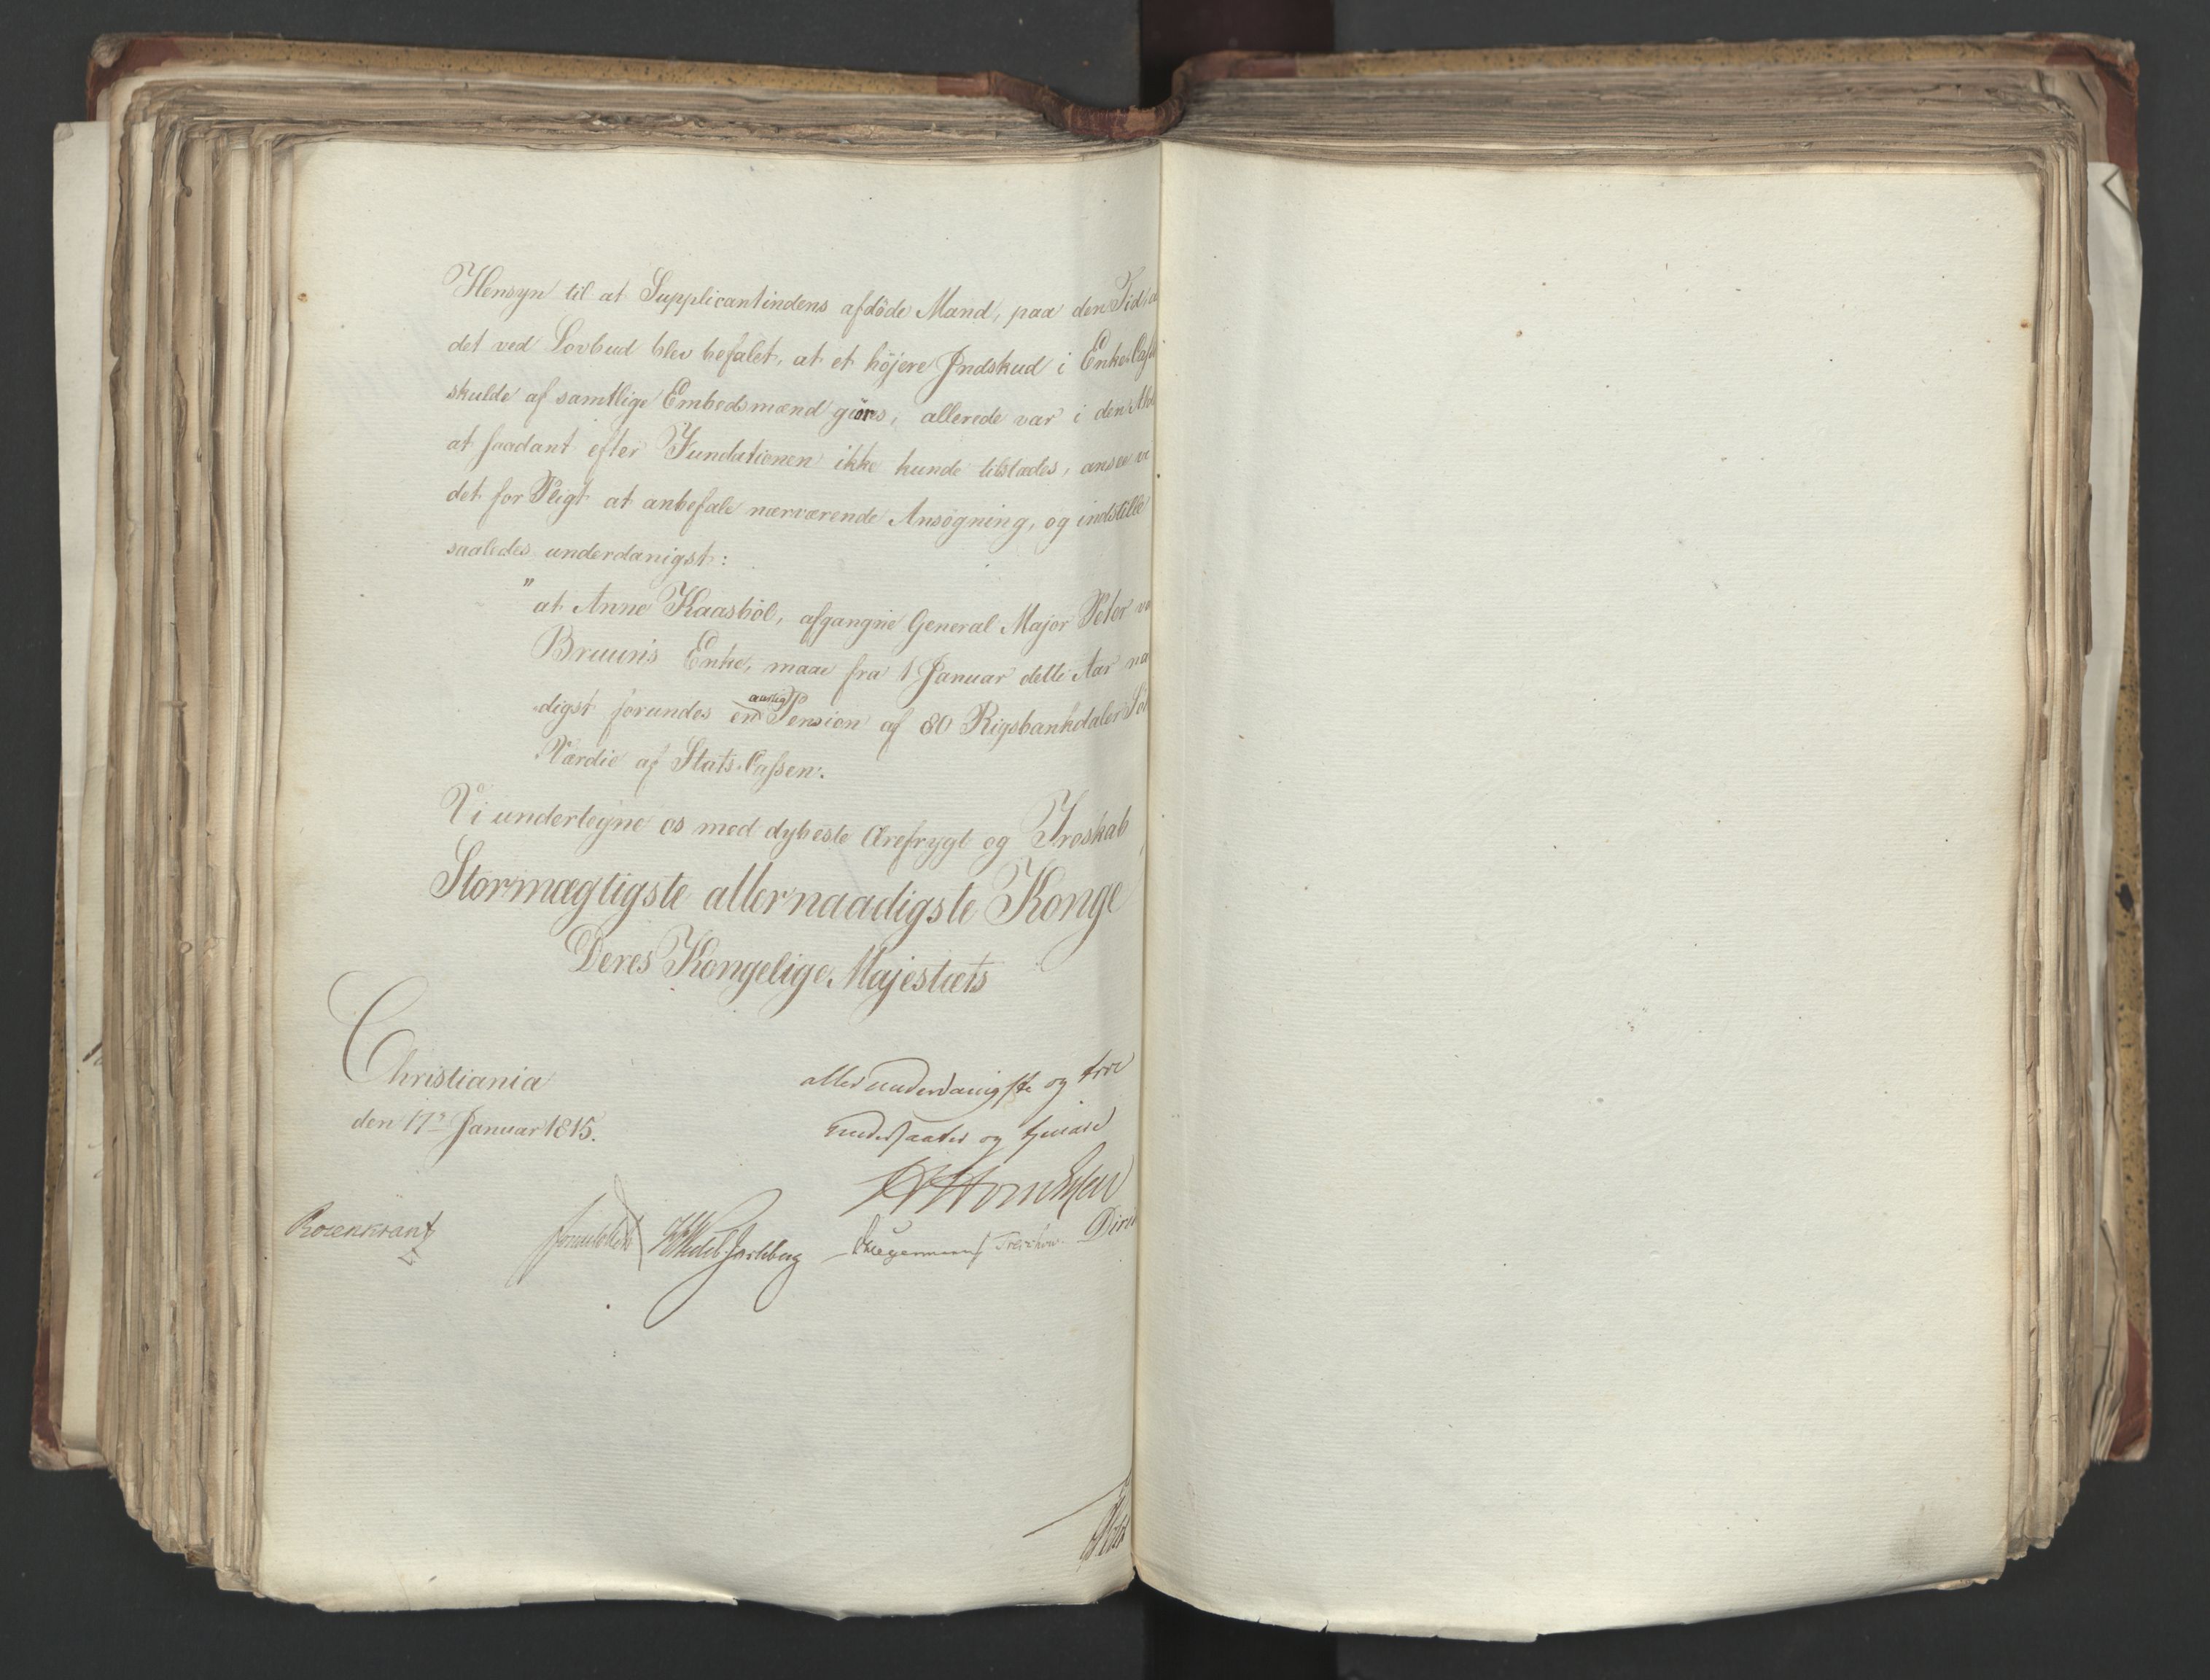 Hensyn til at Supplicantindens afdöde Mand, paa den Tid
det ved Lovbud blev befalet, at et höjere Indskud i Enke-Casse
skulde af samtlige Embedsmænd giöres, allerede var i den
at saadant efter Fundationen ikke kunde tilstædes, ansee
det for Pligt at anbefale nærværende Ansögning, og indstille
saaledes underdanigst:
"at Anne Kaasböl, afgangne General Major Peter
Bruuns Enke, maae fra 1 Januar dette Aar na
digst forundes en aarlig Pension af 80 Rigsbankdaler
Værdie af Stats-Cassen.
Vi underteyne os med dybeste Ærefrygt og Troskab
Stormægtigste allernaadigste Konge
Deres Kongelige Majestæts
Christiania
den 17de Januar 1815.
allerunderdanigste og troe
Undersaatter og tjenere
Rosenkrantz Sommerhielm HWedel Jarlsberg Hegermann Treschow